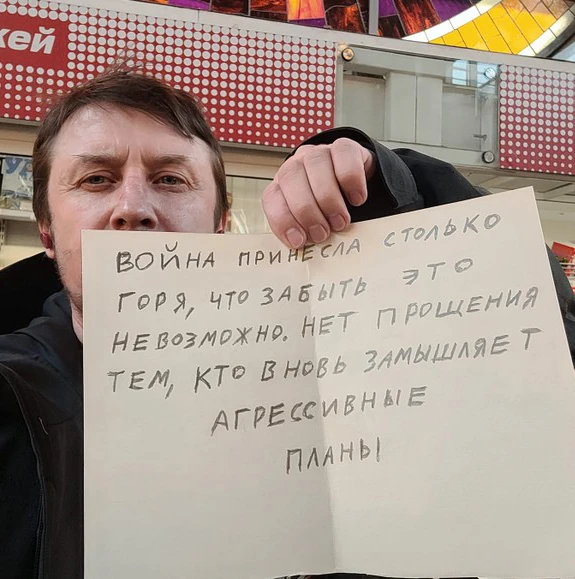 кей
ВОЙНА ПРИНЕСЛА СТОЛЬКО
ГОРЯ, ЧТО ЗАБЫТЬ ЭТО
НЕВОЗМОЖНО. НЕТ ПРОЩЕНИЯ
ТЕМ, КТО ВНОВЬ ЗАМЫШЛЯЕТ
АГРЕССИВНЫЕ
ПЛАНЫ